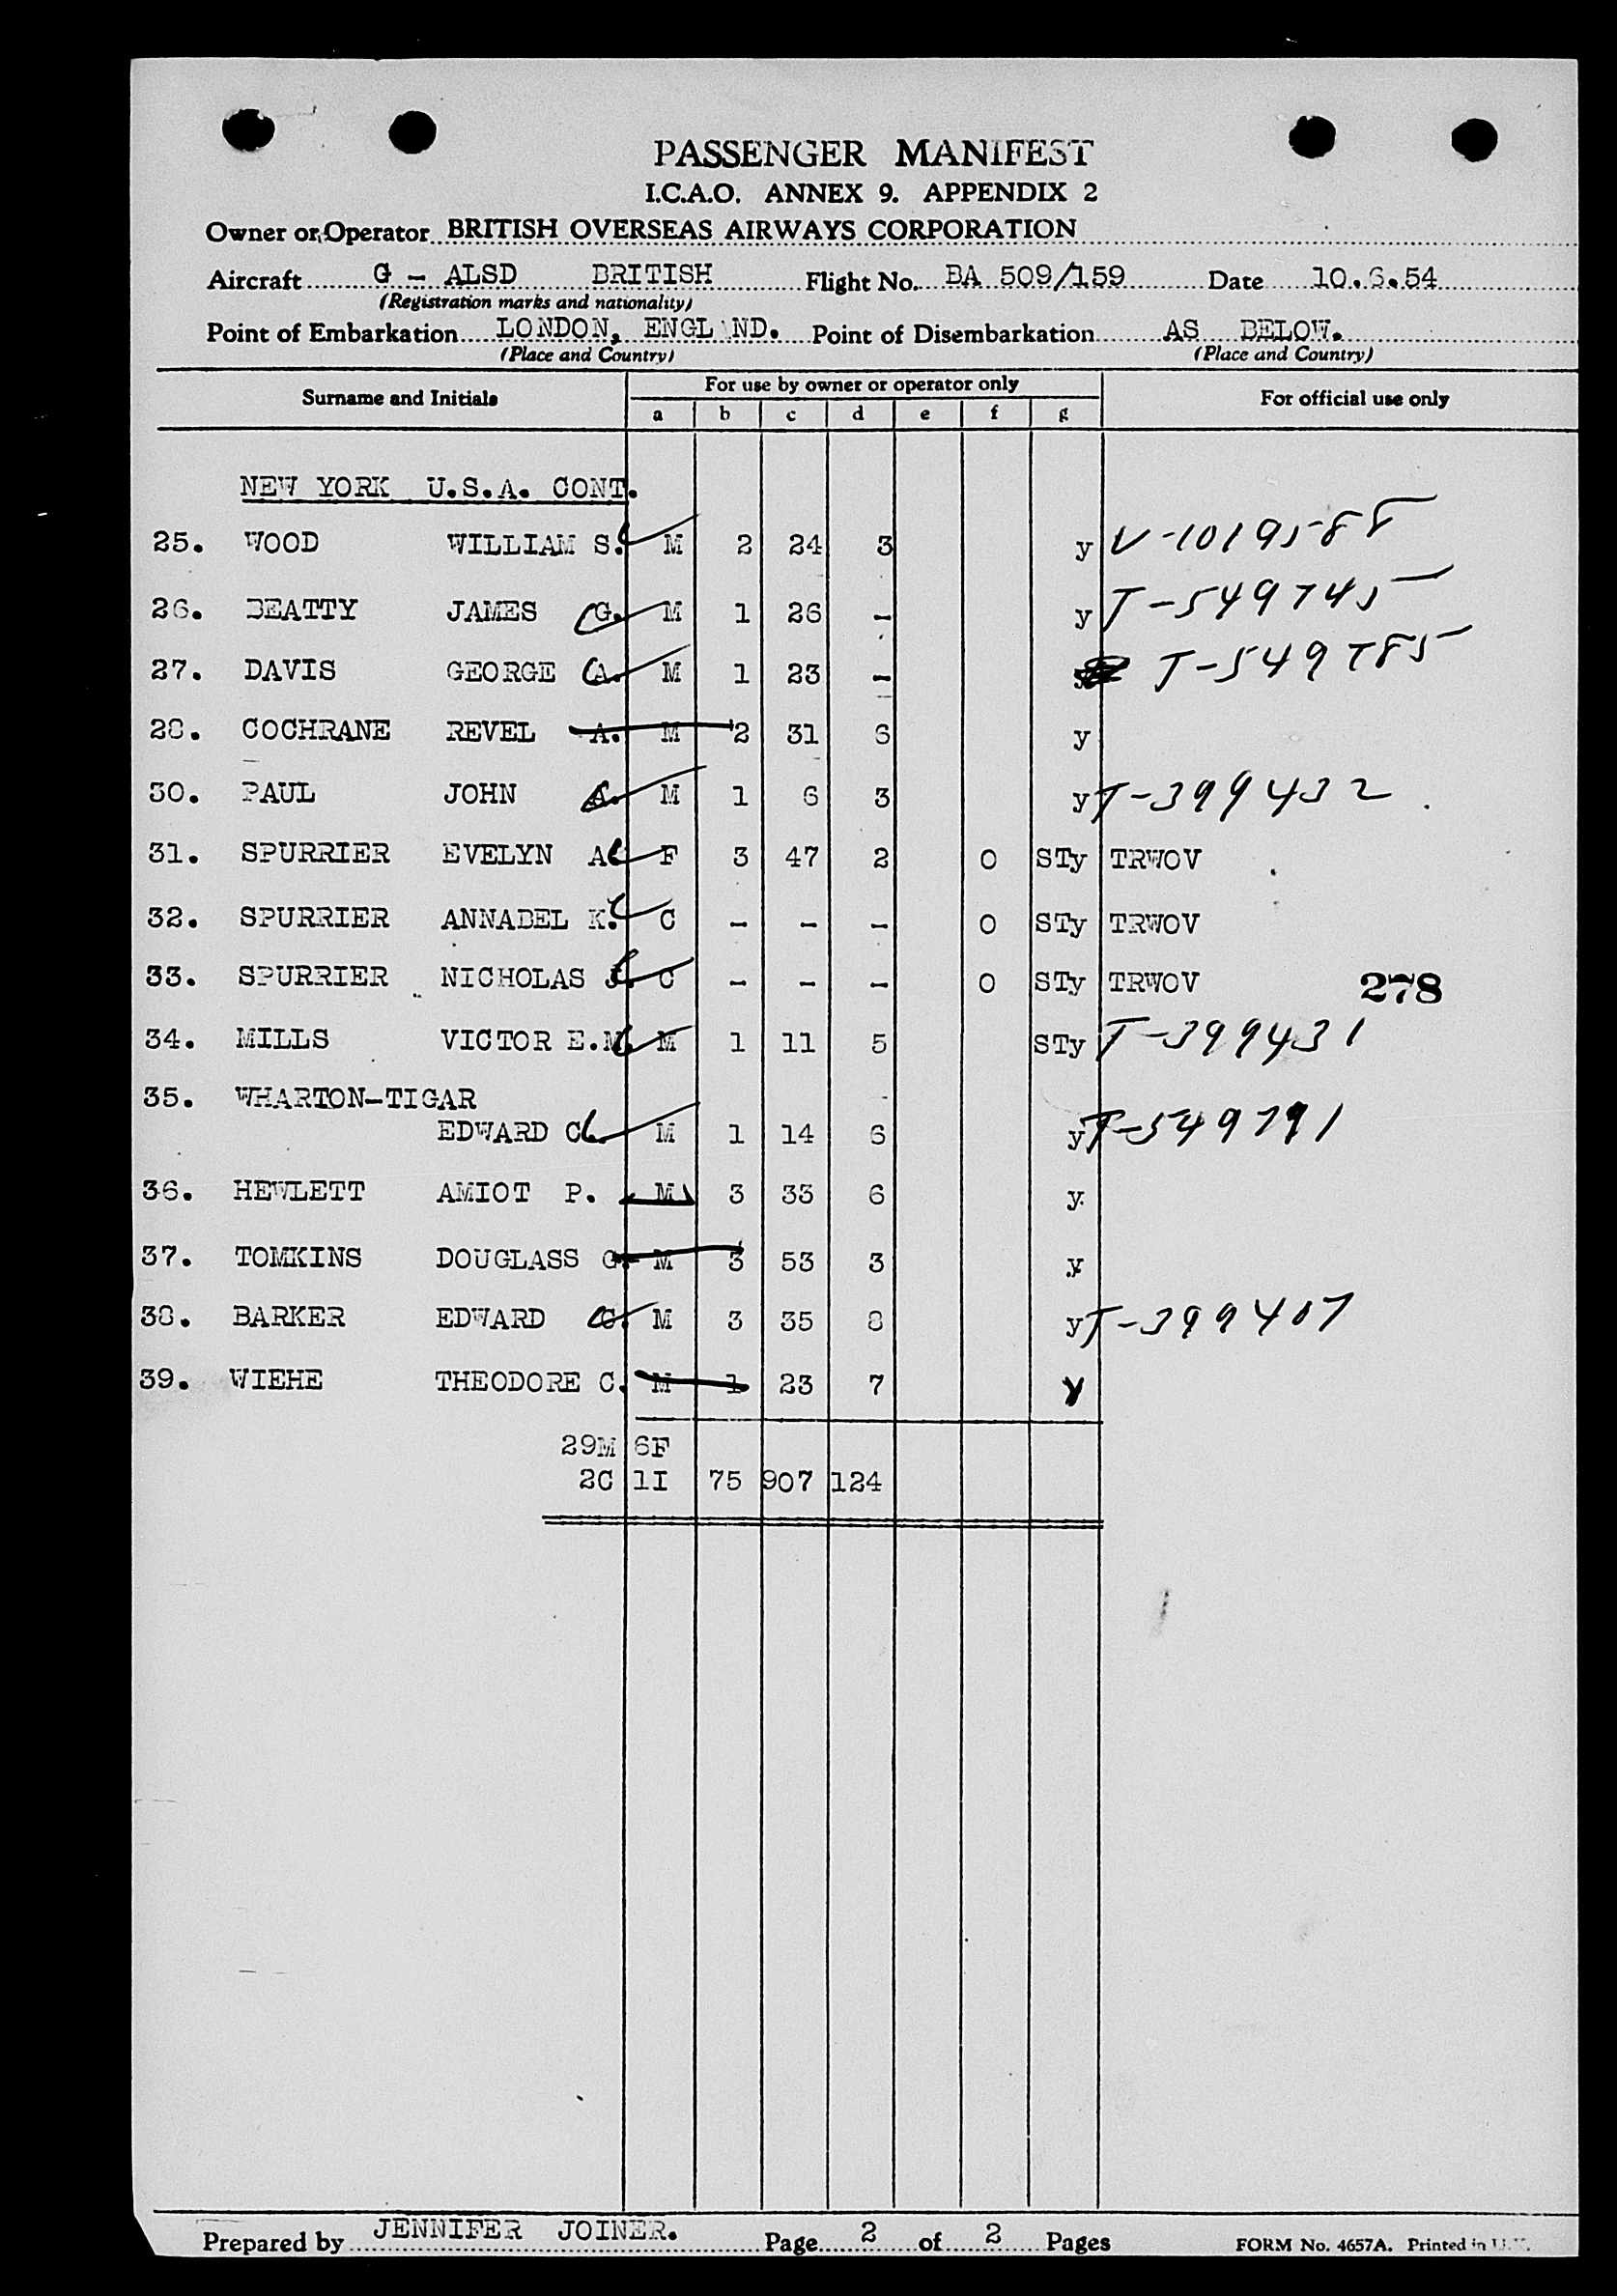 PASSENGER MANIFEST
I.C.A.O. ANNEX 9. APPENDIX 2
Owner or Operator BRITISH OVERSEAS AIRWAYS CORPORATION
Aircraft G - ALSD BRITISH Flight No. BA 509/159 Date 10.6.54
(Registration marks and nationality)
Point of Embarkation LONDON, ENGL ND. Point of Disembarkation AS BELOW.
(Place and Country) (Place and Country)
Surname and Initials For use by owner or operator only For official use only
a b c d e f g
NEW YORK U.S.A. CONT.
25. WOOD WILLIAM S. M 2 24 3 y V-1019588
26. BEATTY JAMES G. M 1 26 - y T-549745
27. DAVIS GEORGE A. M 1 23 - T-549785
28. COCHRANE REVEL A. M 2 31 6 y
30. PAUL JOHN A. M 1 6 3 y T-399432
31. SPURRIER EVELYN A F 3 47 2 O STy TRWOV
32. SPURRIER ANNABEL K. C - - - O STy TRWOV
33. SPURRIER NICHOLAS J. C - - - O STy TRWOV 278
34. MILLS VICTOR E.M. M 1 11 5 STy T-399431
35. WHARTON-TIGAR
EDWARD C. M 1 14 6 y T-549791
36. HEWLETT AMIOT P. M 3 33 6 y
37. TOMKINS DOUGLASS G. M 3 53 3 y
38. BARKER EDWARD G. M 3 35 8 y T-399407
39. WIEHE THEODORE C. M 1 23 7 y
29M 6F
2C 1I 75 907 124
Prepared by JENNIFER JOINER. Page 2 of 2 Pages FORM No. 4657A. Printed in U.K.